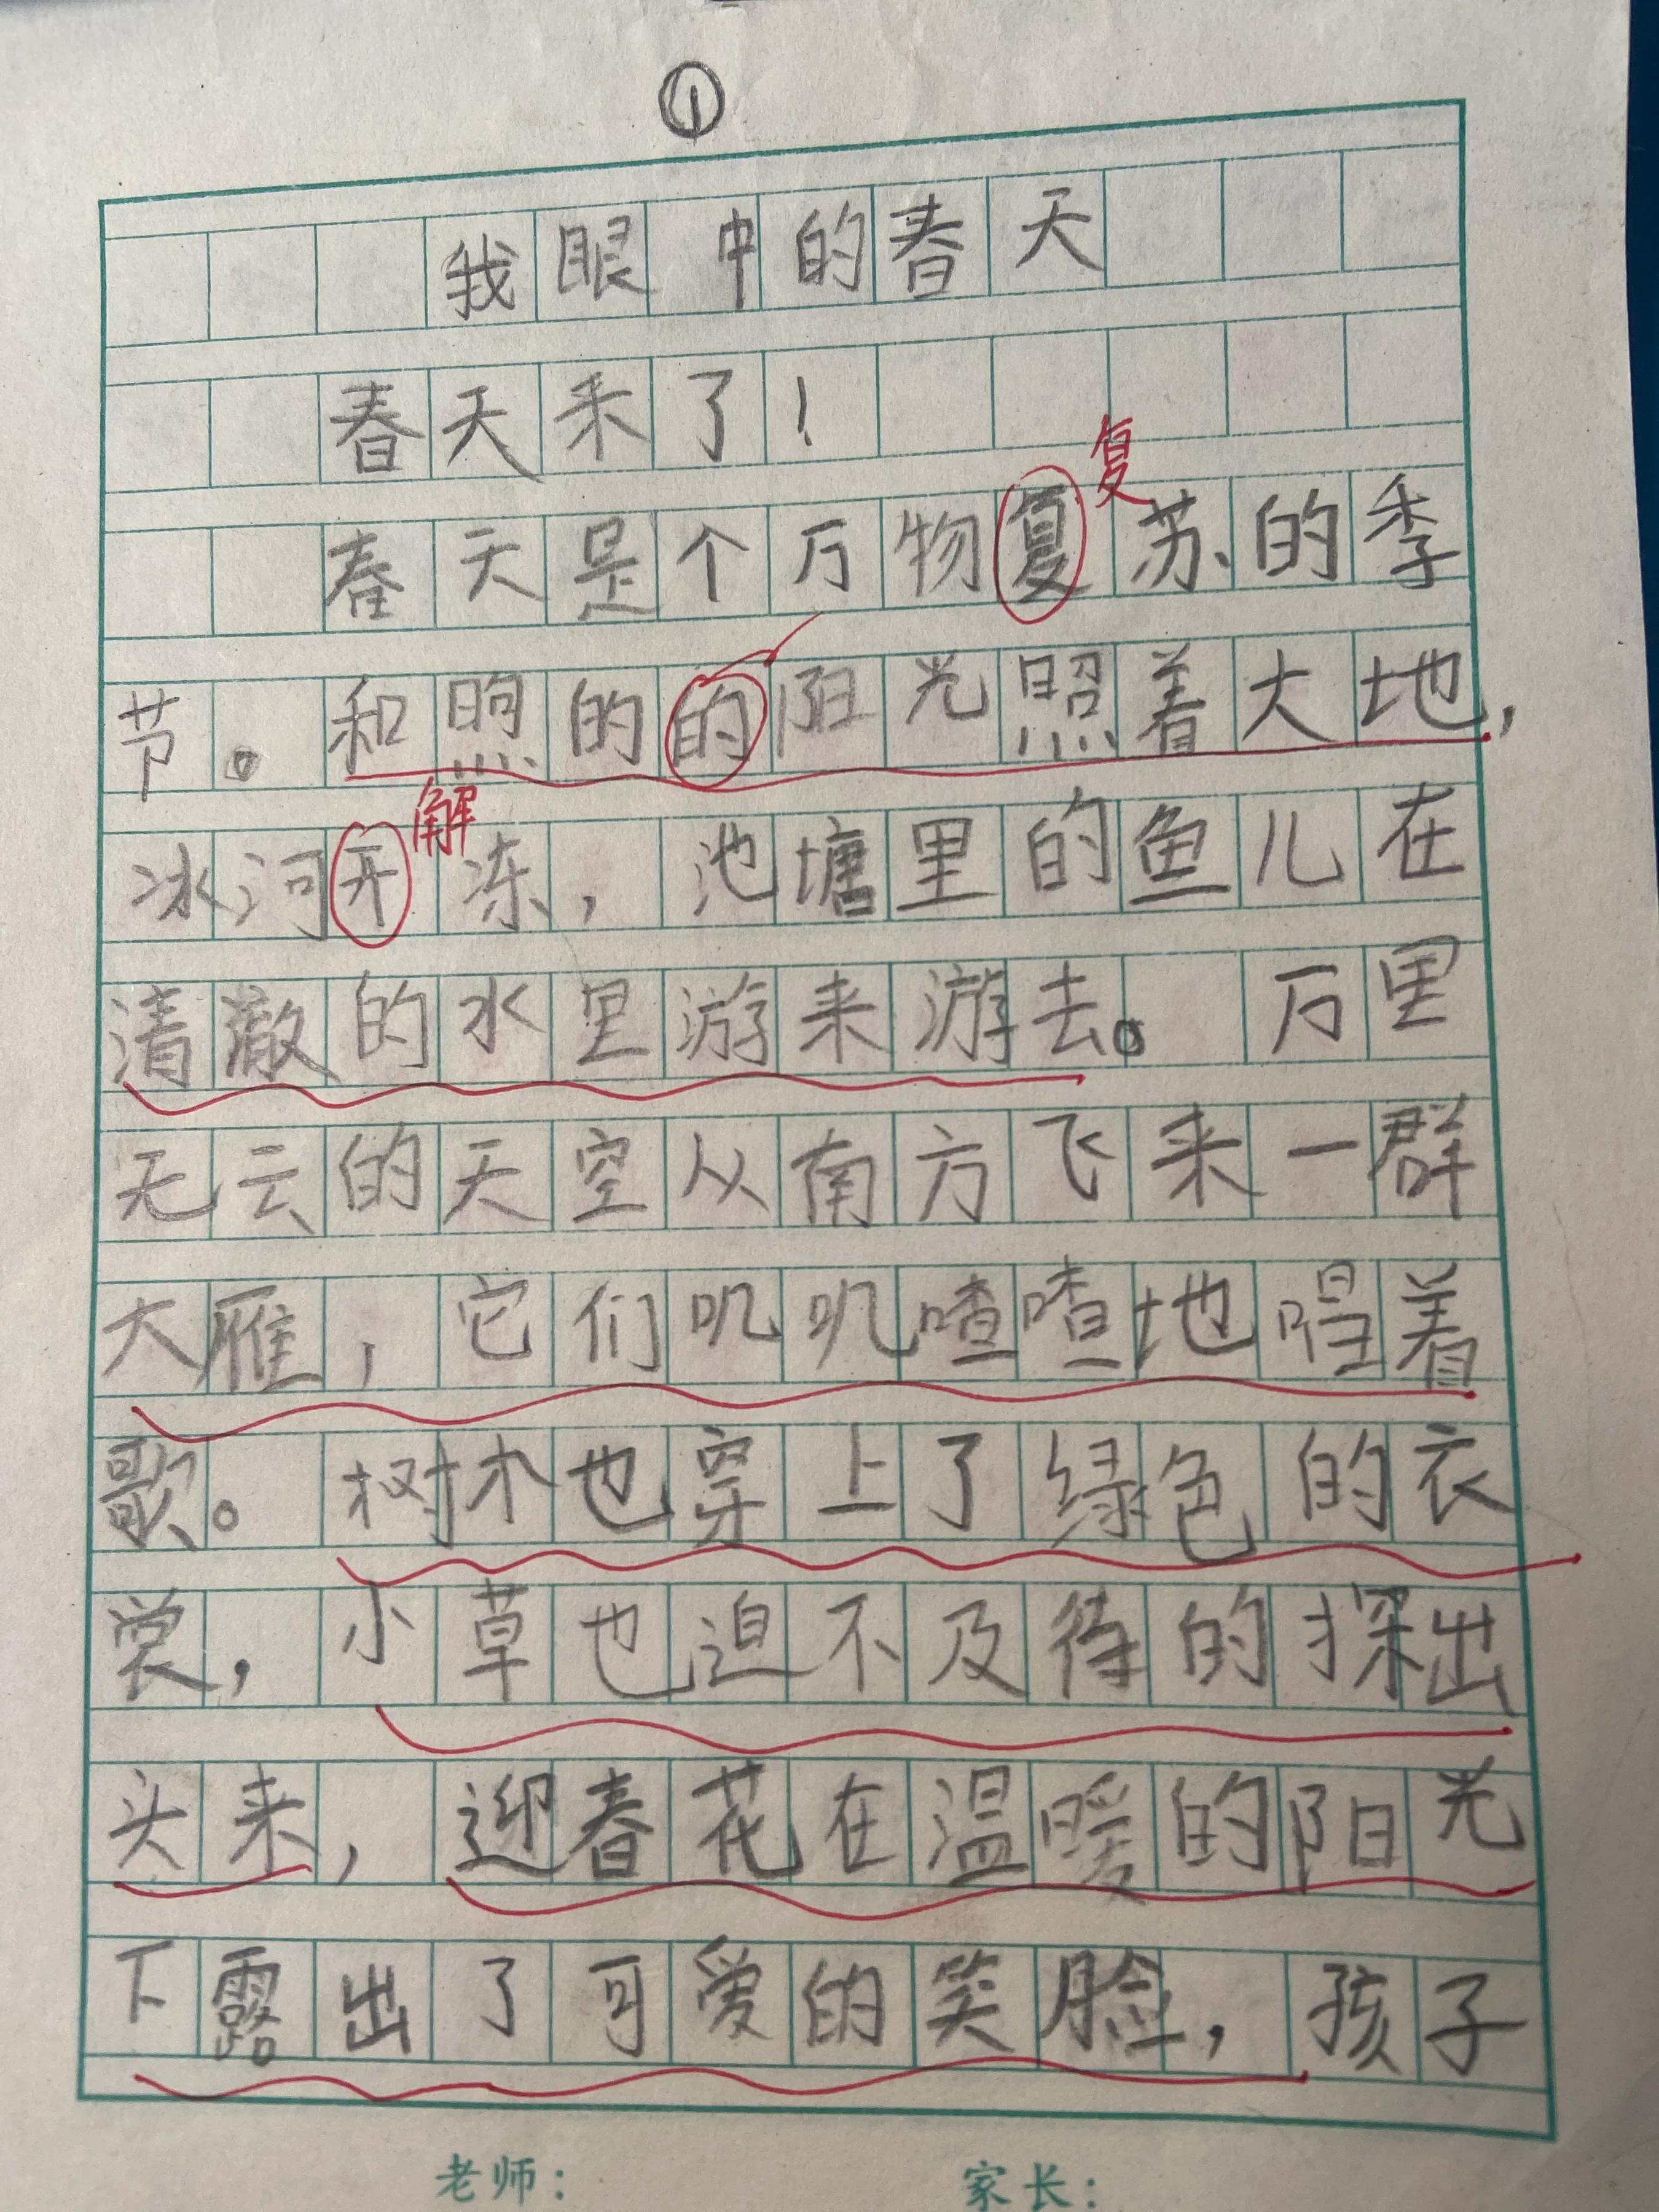 ①
我眼中的春天
春天来了！
复
春天是个万物复苏的季
节。和煦的的阳光照着大地，
解
冰河开冻，池塘里的鱼儿在
清澈的水里游来游去。万里
无云的天空从南方飞来一群
大雁，它们叽叽喳喳地唱着
歌。树木也穿上了绿色的衣
裳，小草也迫不及待的探出
头来，迎春花在温暖的阳光
下露出了可爱的笑脸，孩子
老师： 家长：